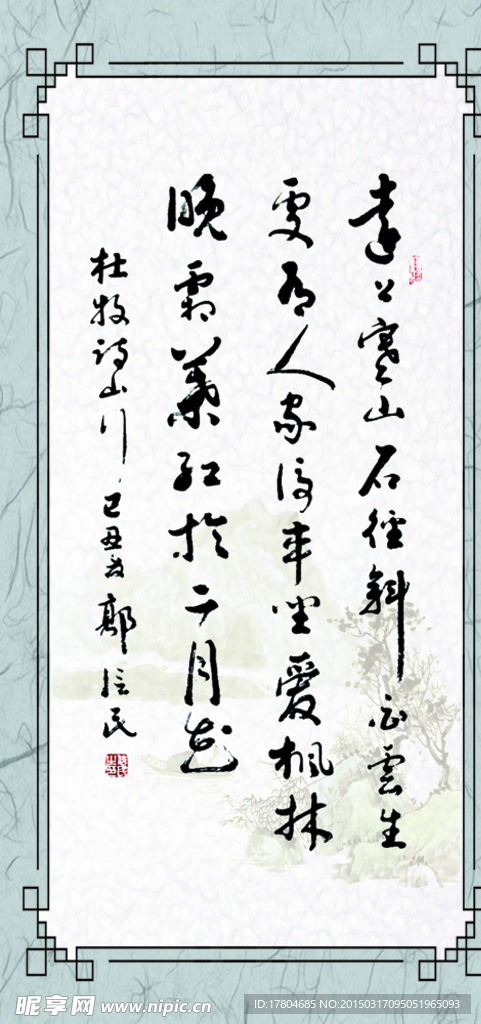 遠上寒山石徑斜白雲生
處有人家停車坐愛楓林
晚霜葉紅於二月花
杜牧詩山行 己丑
民
昵享网 www.nipic.cn
ID:17804685 NO:20150317095051965093